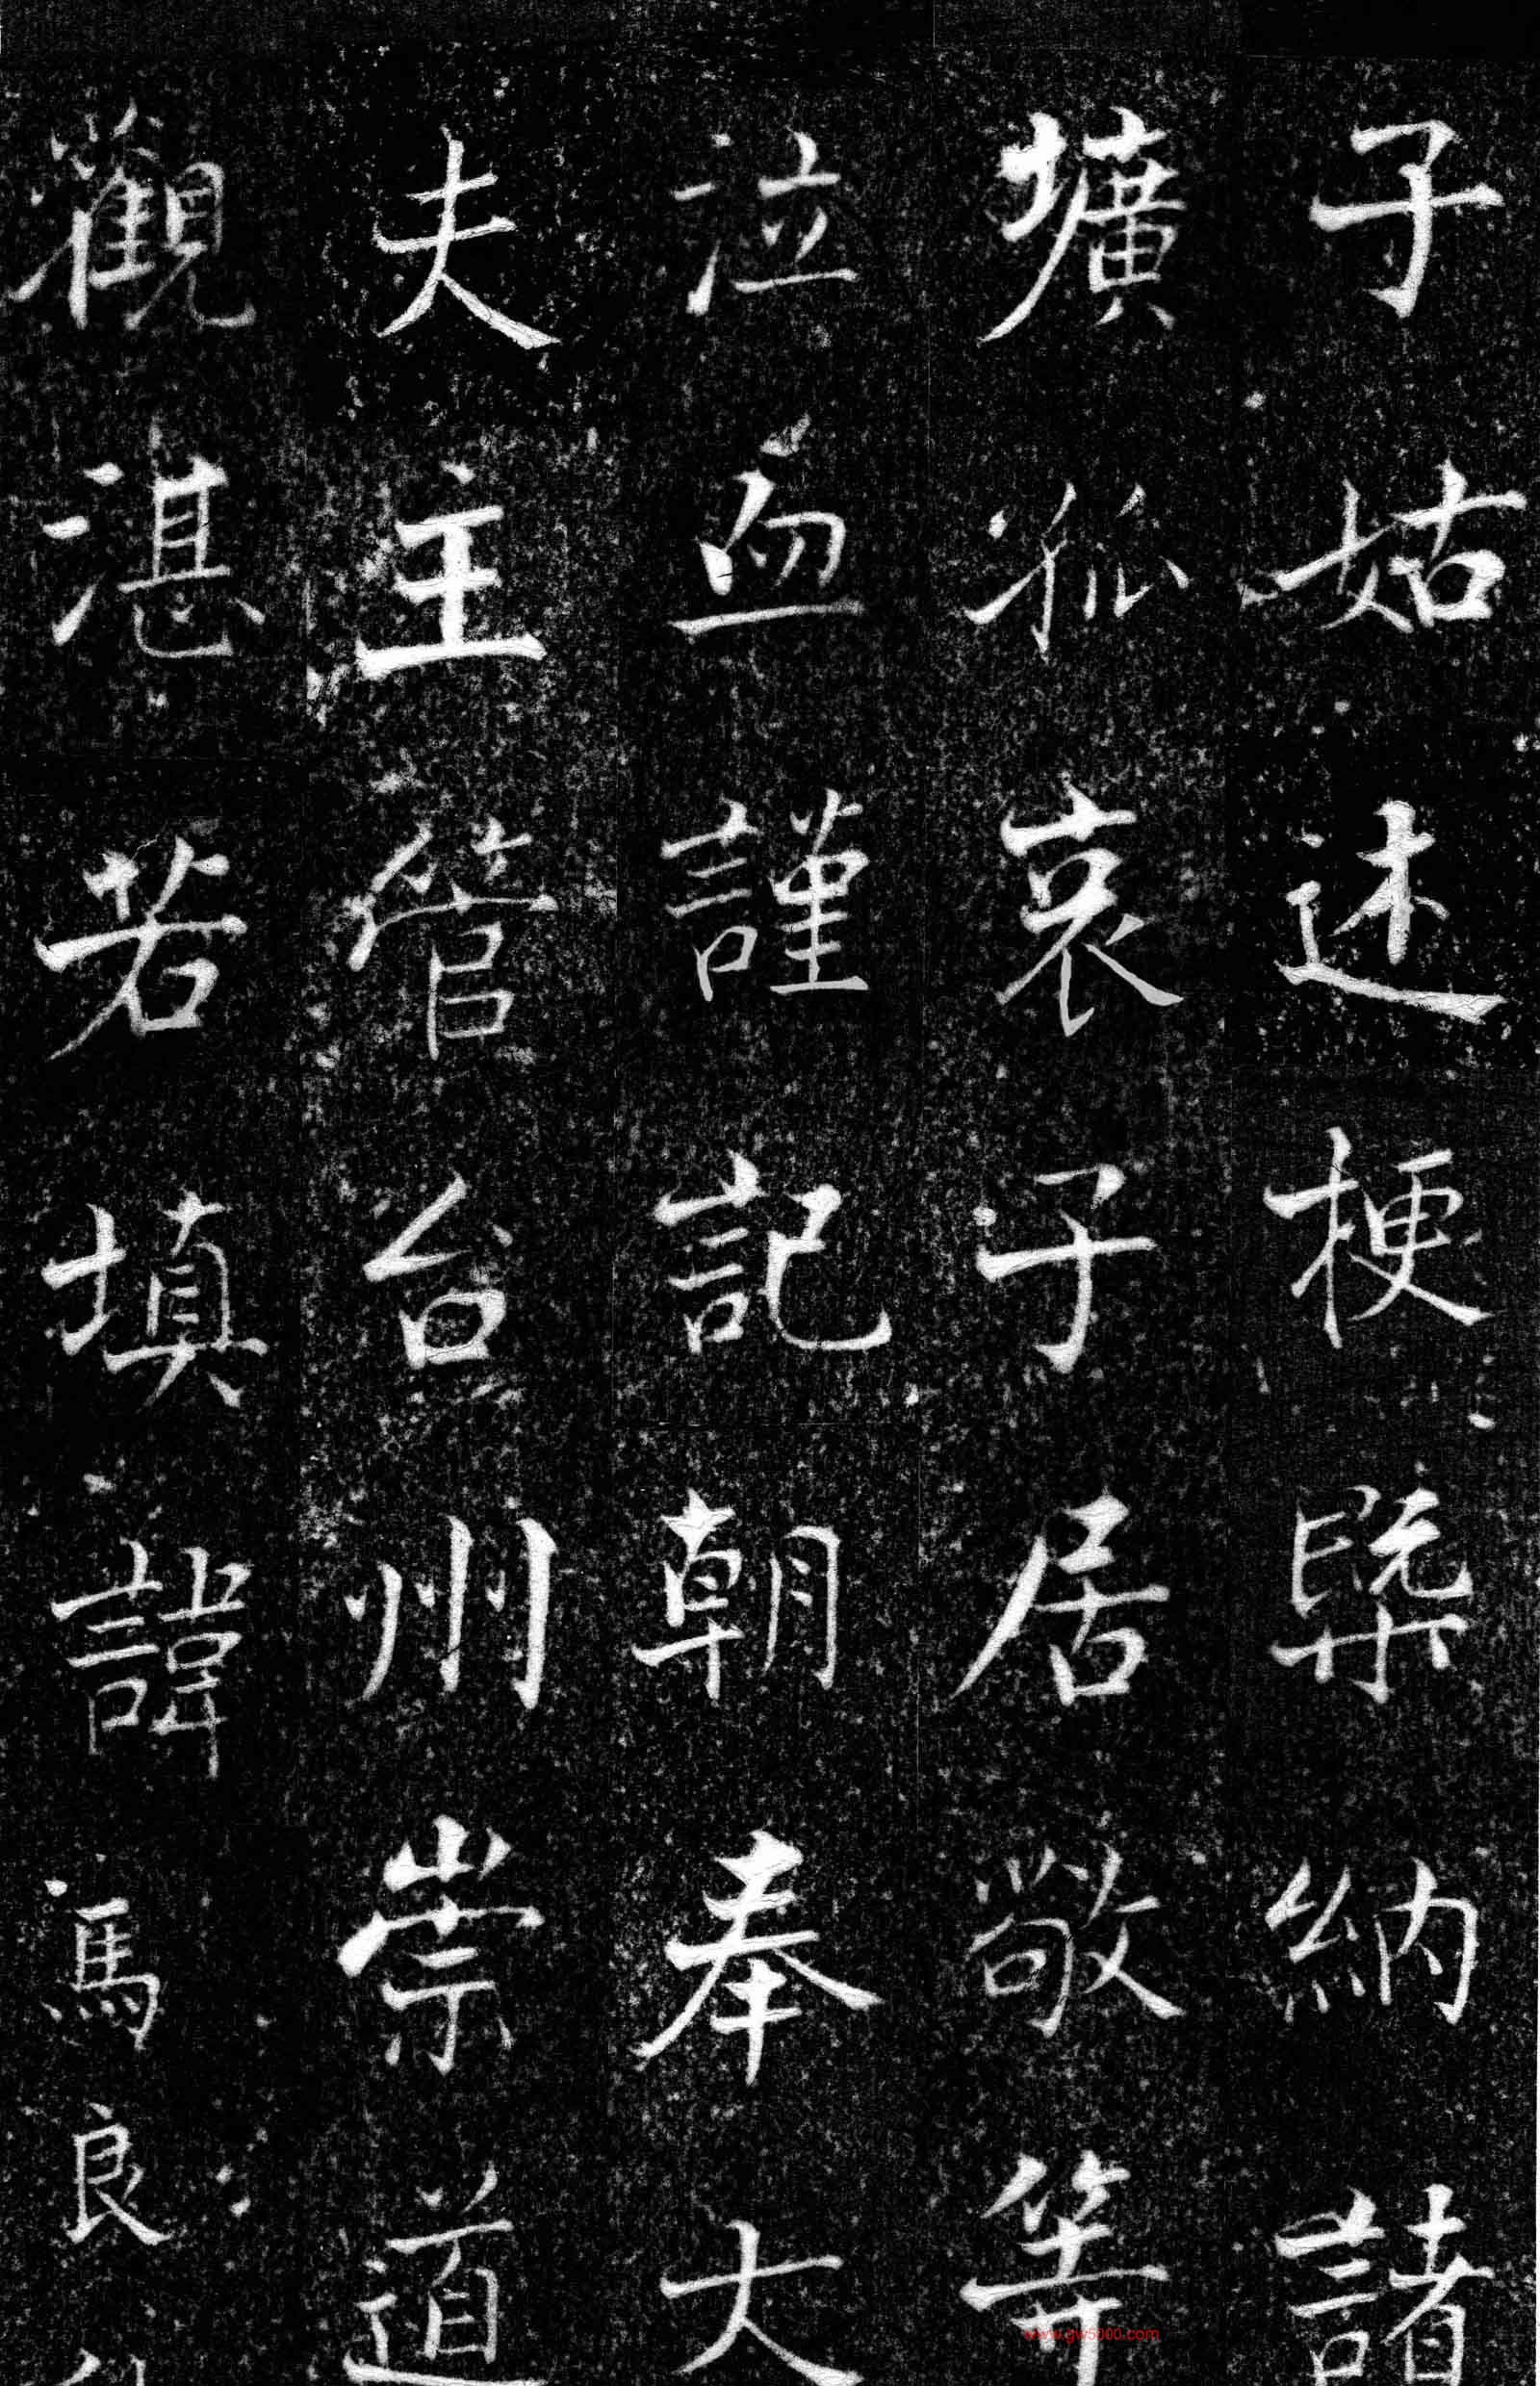 子姑述梗槩納諸
壙孤哀子居敬等
泣血謹記朝奉大
夫主管台州崇道
觀湛若填諱馮良
www.gw5000.com